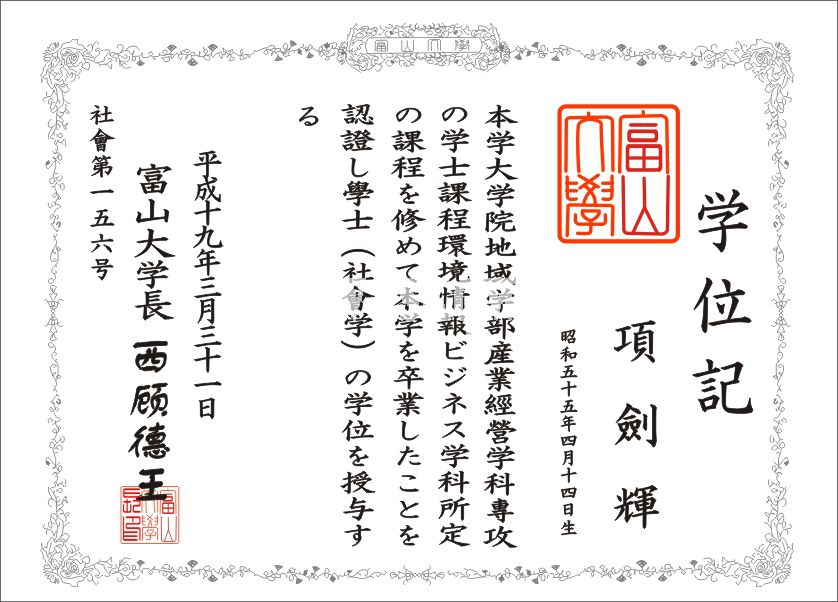 富山大學
学位記
富山大學
項劍輝
昭和五十五年四月十四日生
本学大学院地域学部産業經營学科專攻
の学士課程環境情報ビジネス学科所定
の課程を修めて本学を卒業したことを
認證し學士（社會学）の学位を授与す
る
平成十九年三月三十一日
富山大学長 西顾德王
社會第一五六号